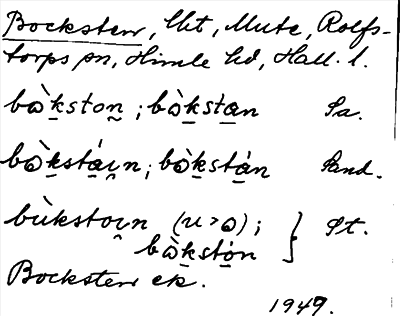 Bocksten, lht, Mute, Rolfs-
torps sn, Himle hd, Hall. l.
bò̱kston̰ ; bò̱kstan Sa.
bò̱kstáɪn; bò̱kstán Sand.
bùkstoɪn (u>ɔ) ; St.
bò̱kstón
Bocksten ek.
1949.